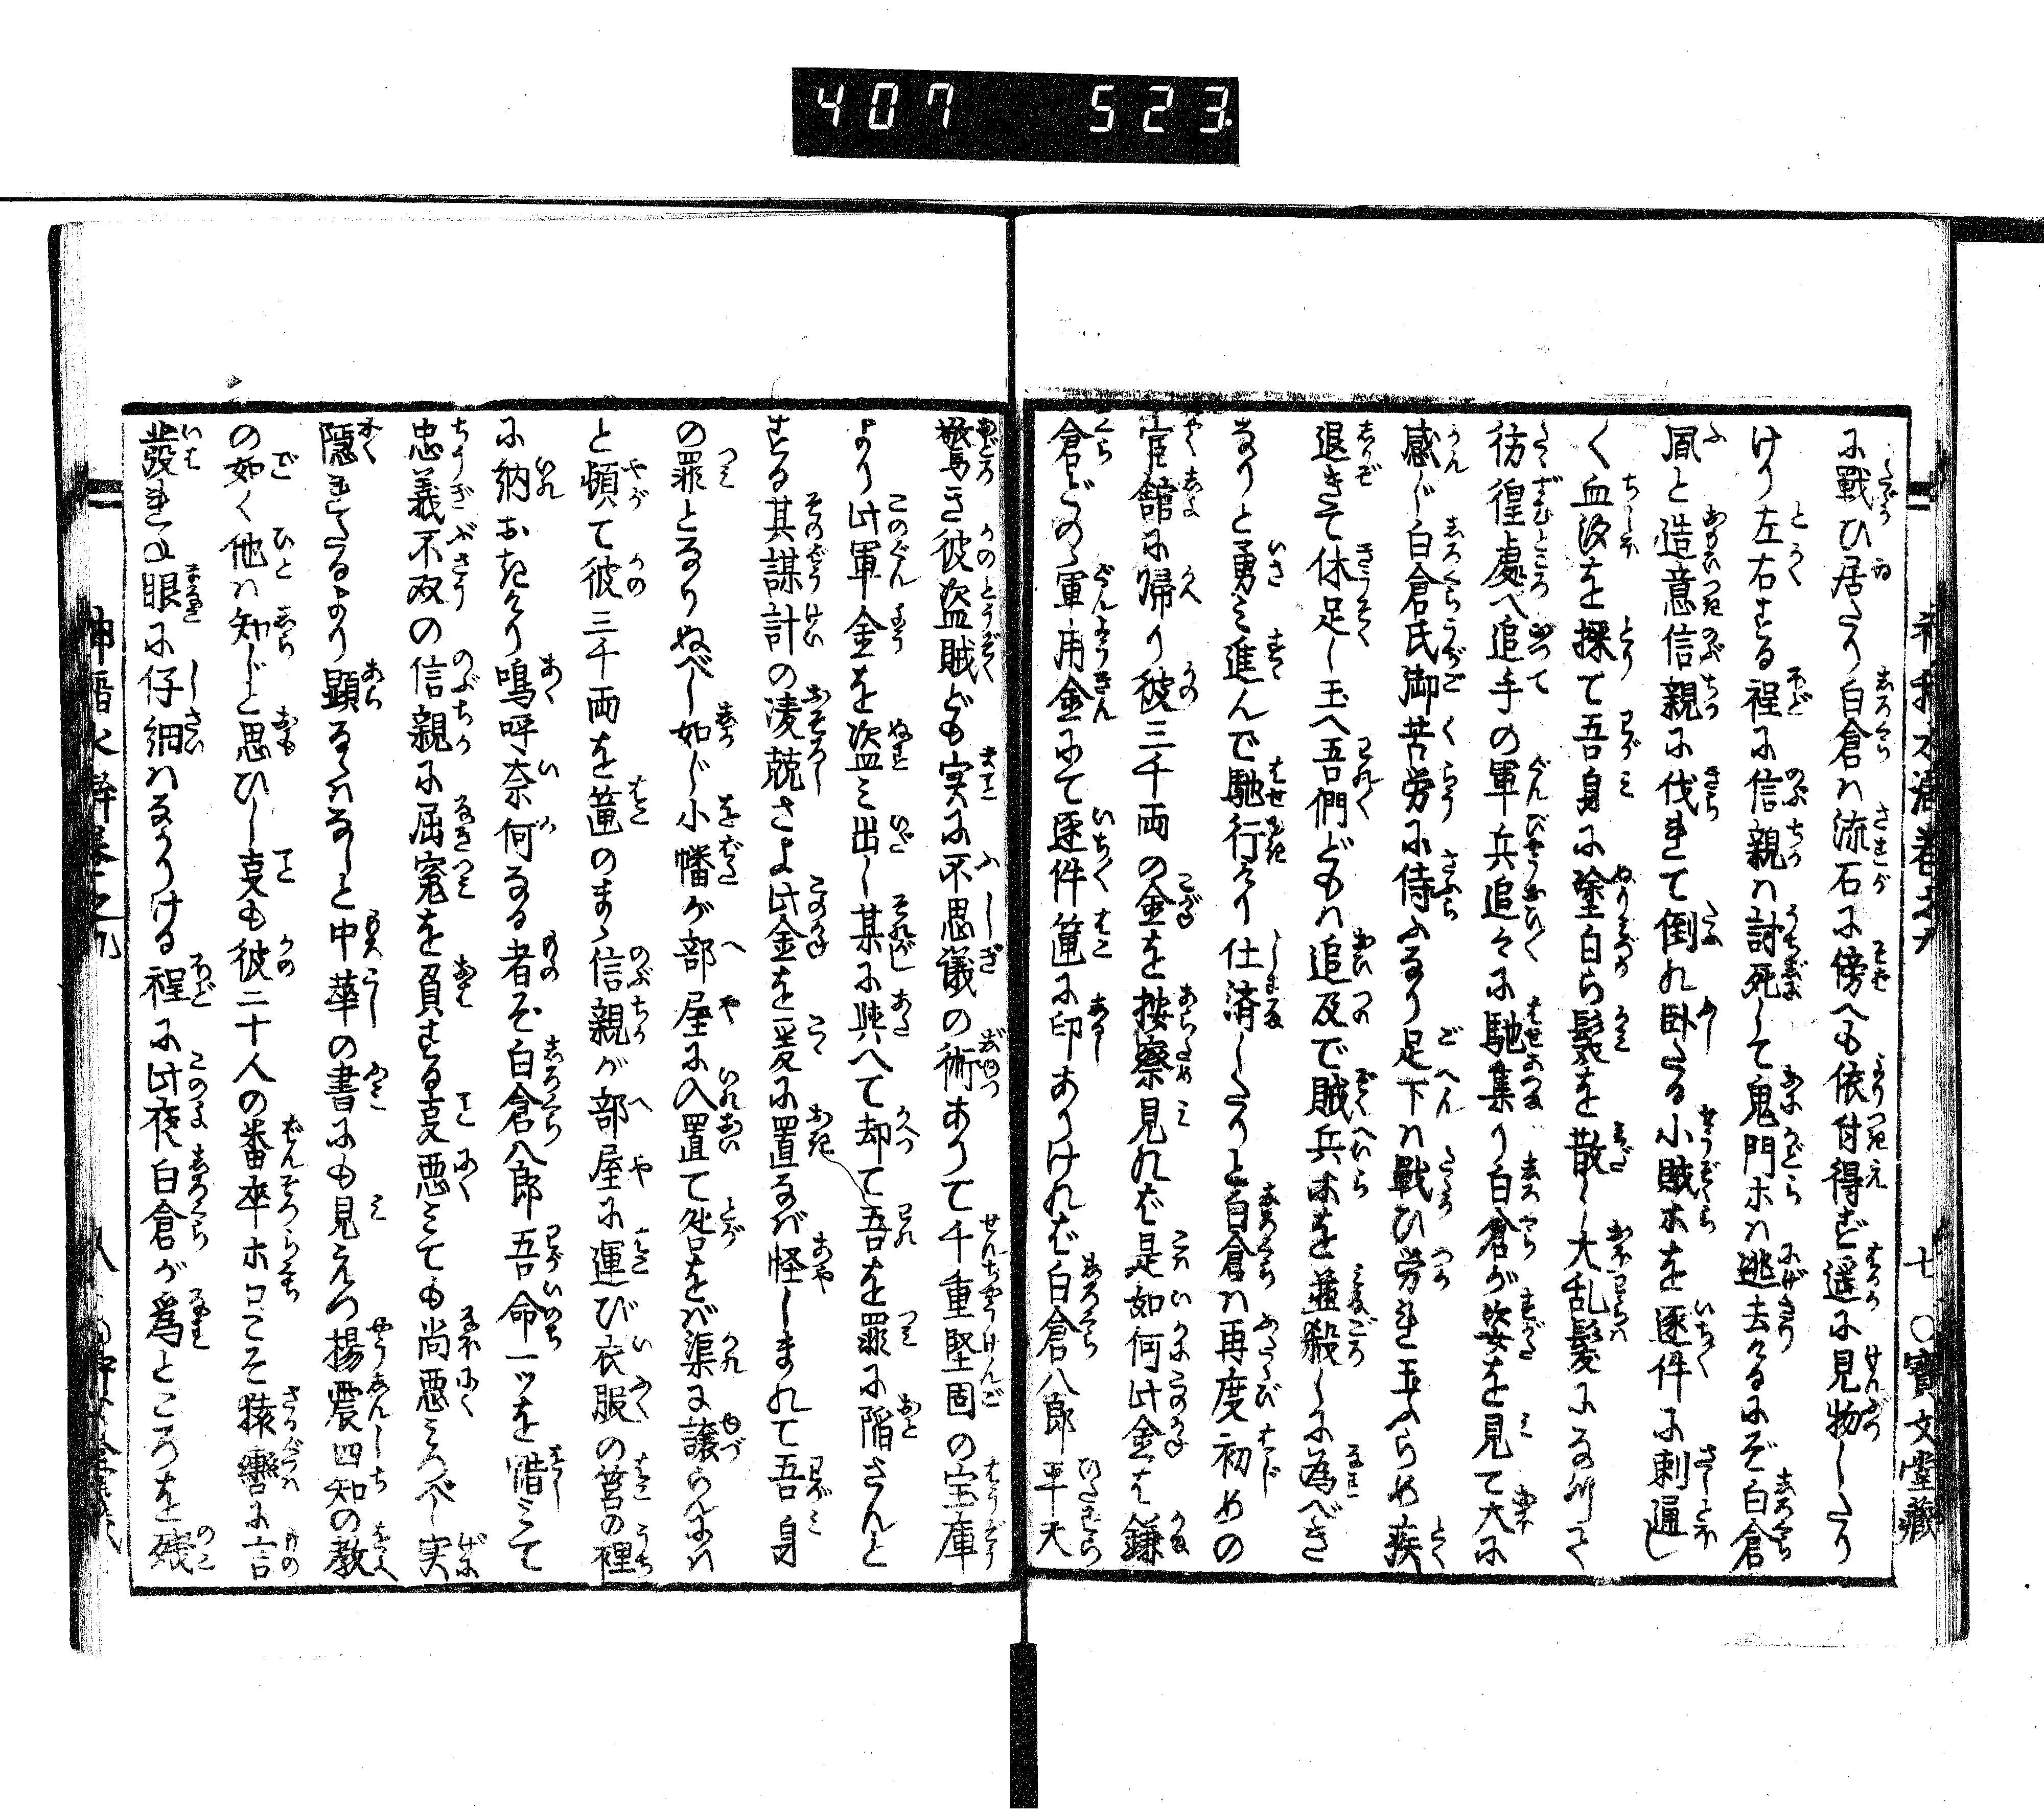 407 523.
に戦ひ居たり白倉ハ流石に傍へも依付得ず遥に見物したり
けり左右する程に信親ハ討死して鬼門ホハ逃去けるにぞ白倉
風と造意信親に伐れて倒れ臥たる小賊ホを逐件に刺通し
く血汐を採て吾身に塗自ら髪を散し大乱髪になりて
彷徨處へ追手の軍兵追々に馳集り白倉が姿を見て大に
感じ白倉氏御苦労に侍ふなり足下ハ戦ひ労れ玉へらめ疾
退きて休足し玉へ吾們どもハ追及で賊兵ホを鏖殺しに為べき
なりと勇ミ進んで馳行けり仕済したりと白倉ハ再度初めの
官舘に帰り彼三千両の金を按察見れば是如何此金ハ鎌
倉どの軍用金にて逐件篋に印ありければ白倉八郎平太
驚き彼盗賊ども実に不思議の術ありて千重堅固の宝庫
より此軍金を盗ミ出し某に與へて却て吾を罪に陥さんと
する其謀計の凄兢さよ此金を爰に置なバ怪しまれて吾身
の罪となりぬべし如じ小幡が部屋に入置て咎をバ渠に譲らんにハ
と頓て彼三千両を篋のまゝ信親が部屋に運び衣服の筥の裡
に納おきけり嗚呼奈何なる者ぞ白倉八郎吾命一ッを惜ミて
忠義不双の信親に屈寃を負する亊悪ミても尚悪ミつべし実
隠れたるより顕るゝハなしと中華の書にも見えつ揚震四知の教
の如く他ハ知じと思ひし亊も彼二十人の番卒ホ口こそ猿轡に言
發れね眼に仔細ハなかりける程に此夜白倉が為ところを残
七 ○寳文堂藏